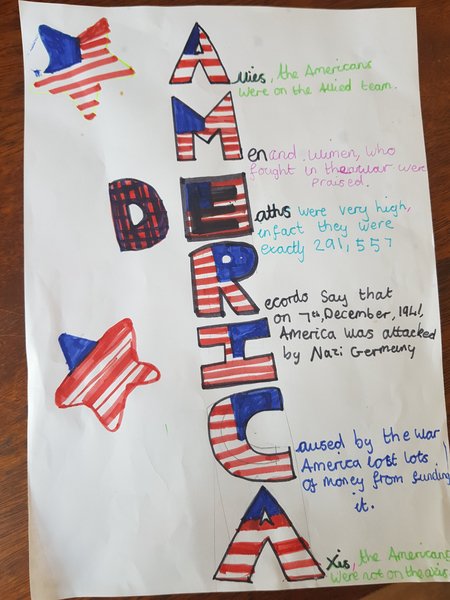 Allies, the Americans
were on the Allied team.
Men and wimen, who
fought in the war were
praised.
DEaths were very high,
infact they were
exactly 291,557
Records Say that
on 7th, December, 1941,
America was attacked
by Nazi Germany
I
Caused by the war
America lost lots
of money from funding
it.
Axis, the Americans
were not on the axis